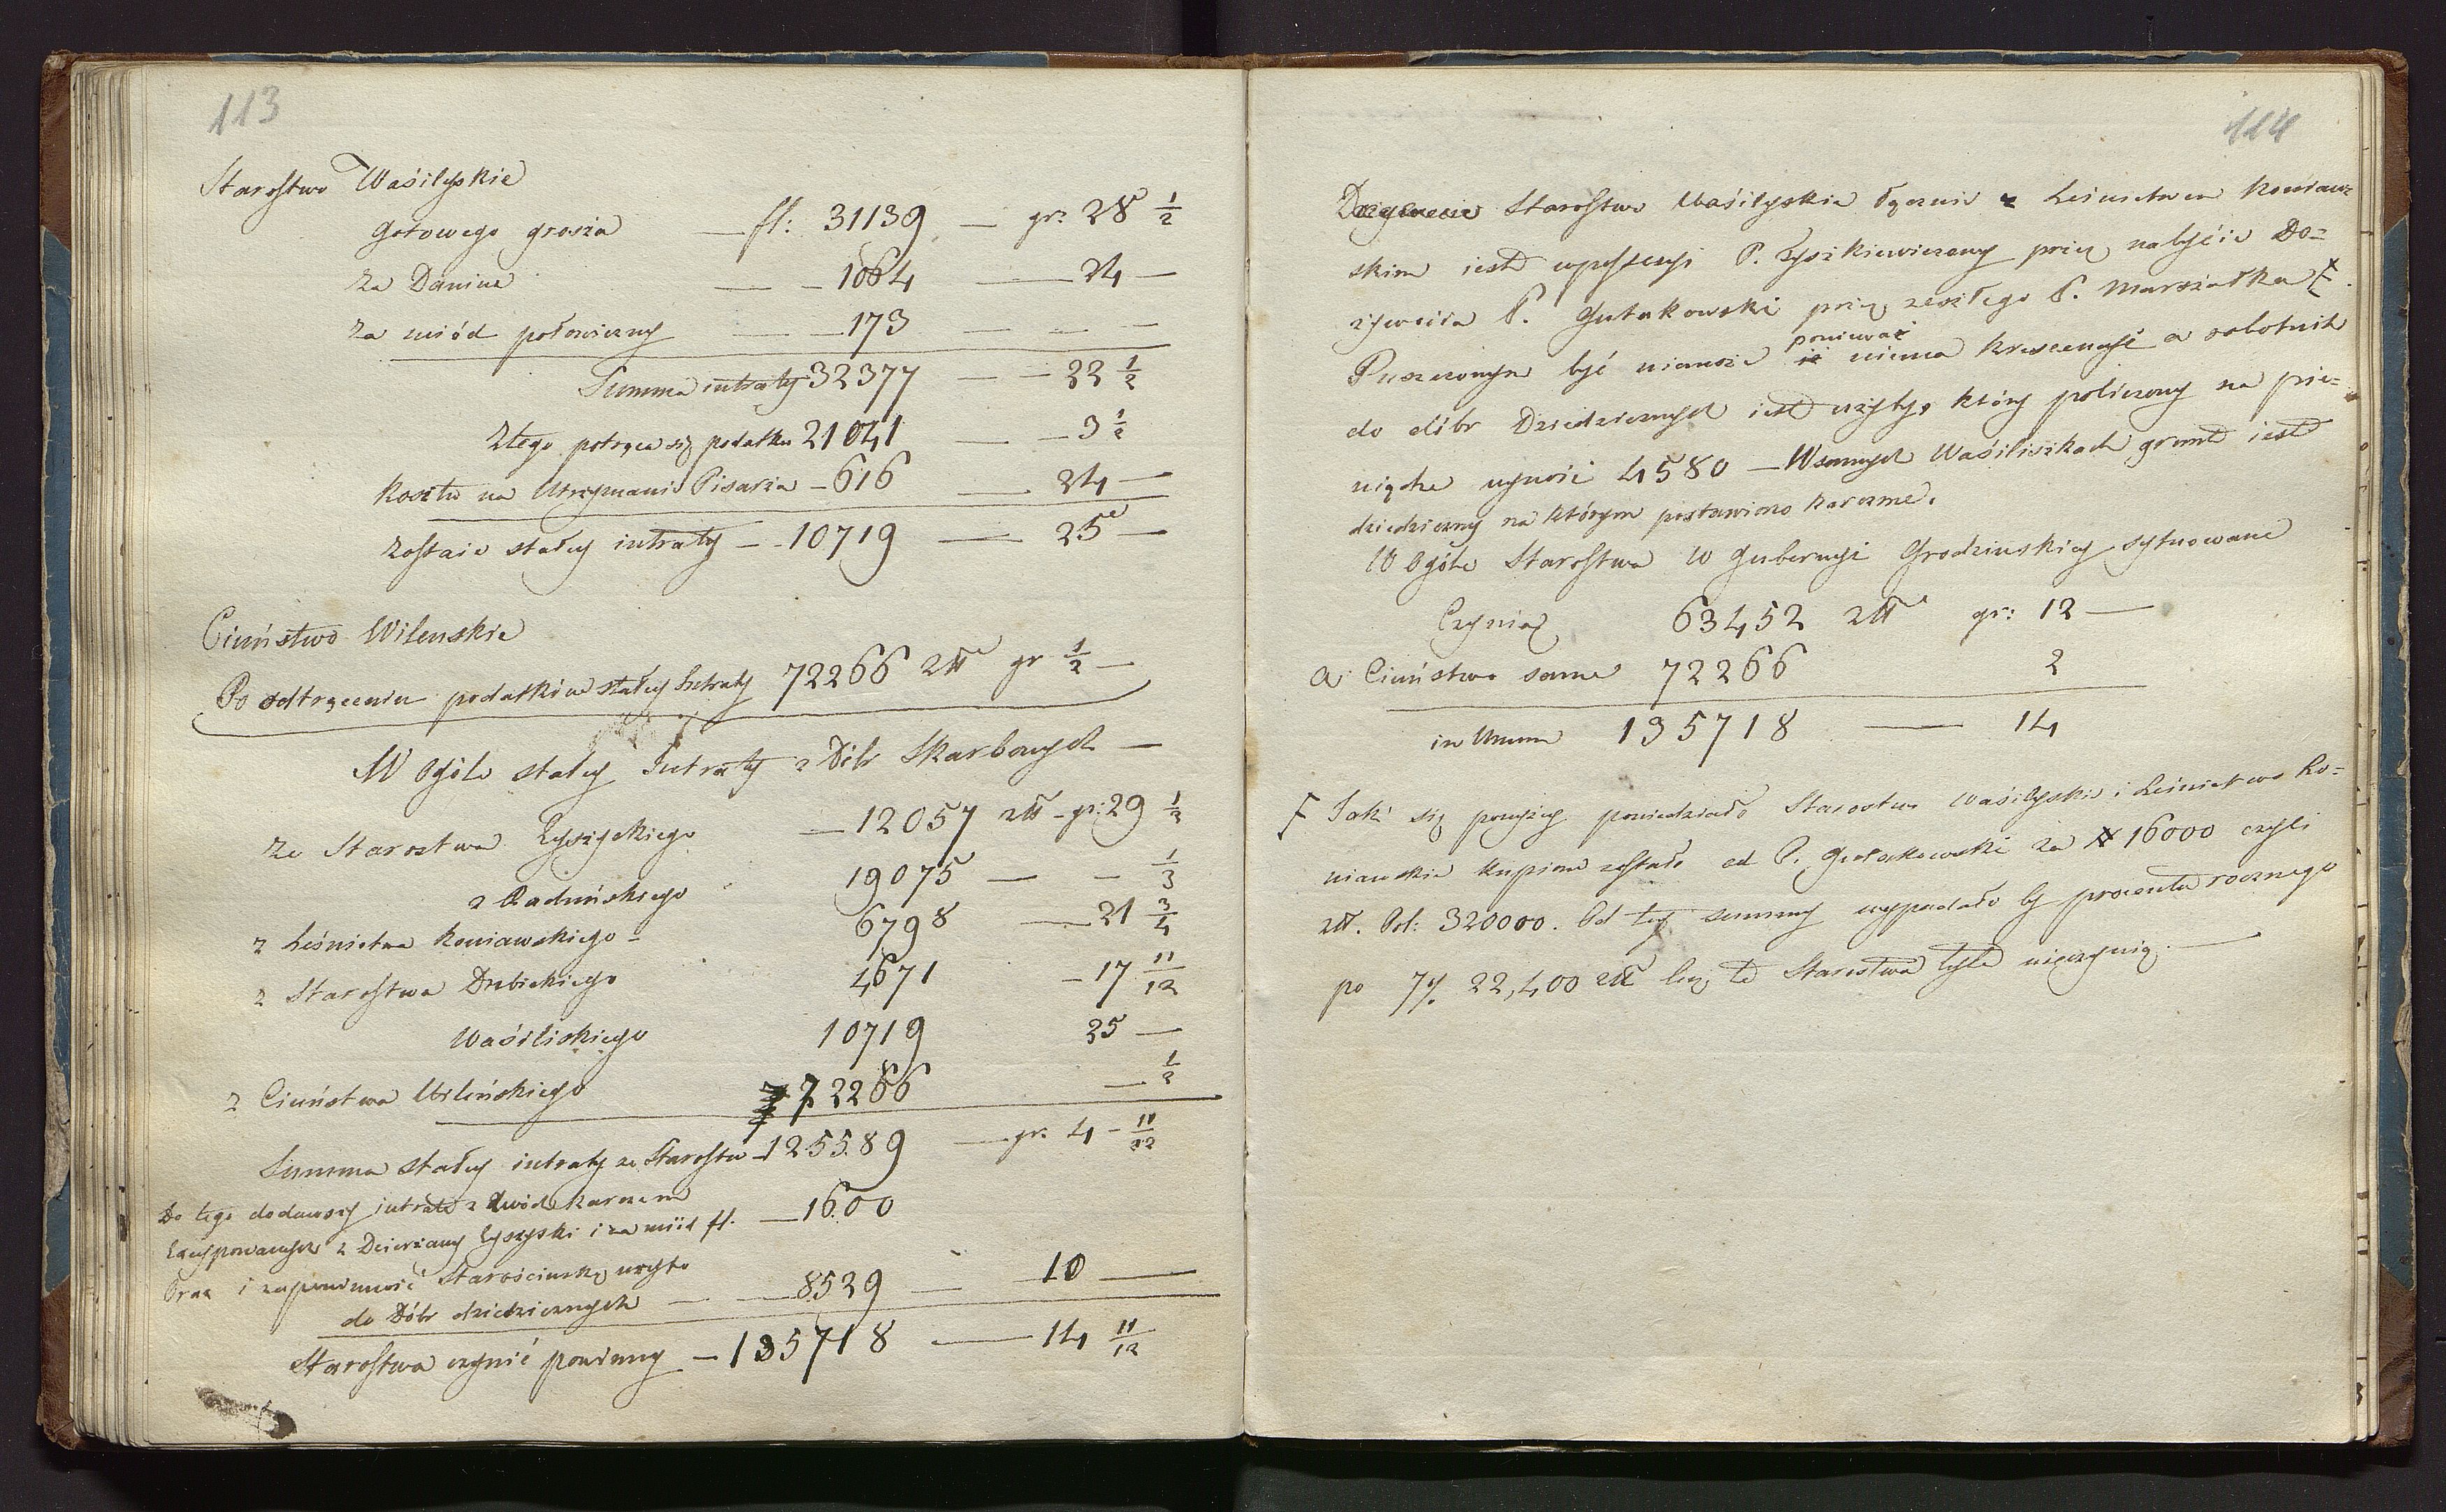 113
Starostwo Wasilyskie
Gotowego grosza — fl: 31139 — gr: 28 1/2
Za Daninę — — 1064 — 24 —
Za miód połowiczny — — 173 — — —
Summa intraty 32377 — — 22 1/2
Ztego potrąca się podatku 21041 — — 3 1/2
Kosztu na Utrzymanie Pisarza — 616 — 24 —
Zostaie stałey intraty — 10719 — 25 —
Ciuństwo Wilenskie
Po odtrąceniu podatków stałey Intraty 72266 złł gr 1/2 —
W ogóle stałey Intraty z Dóbr Skarbowych —
Ze Starostwa Eyszyskiego — 12057 złł - gr: 29 1/2
z Raduńskiego 19075 — — 1/3
z Leśnictwa Koniawskiego — 6798 — 21 3/4
z Starostwa Dubickiego 4671 — 17 11/12
Wasiliskiego 10719 25 —
z Ciuństwa Wileńskiego 72266 — 1/2
Summa stałey intraty ze Starostw — 125589 — gr: 4 — 11/12
Do tego dodawszy intratę z dwóch karczem
z Dzierżawy Eyszyski i za miód fl. — 1600
Oraz i zapowinność Starościńską użyto
do Dóbr dziedzicznych — — 8529 — 10 —
Starostwa czynić powinny — 135718 — 14 11/12
114
Starostwo Wasilyskie łącznie z Leśnictwem Koniaw=
skim iest w possessyi P. Tyszkiewiczowey przez nabyćie Do=
żywocia P. Gutakowski przez zeszłego P. Marszałka F.
Puszczonym być niemoże ponieważ niema krescencyi a robotnik
do dóbr Dziedzicznych iest użyty, który policzony na pie=
niądze wynosi 4580 — W samych Wasiliszkach grunt iest
dziedziczny na którym postawiono karczmę.
W Ogóle Starostwa w Gubernyi Grodzinskiey sytuowane
Czynią 63452 złł gr: 12 —
a Ciuństwo same 72266 2
in Unum 135718 — 14
F Jak się powyżey powiedziało Starostwo Wasilyskie i Leśnictwo Ko=
niawskie kupione zostało od P. Gutakowski za # 16000 czyli
złł. Pol: 320000. Od tey summy wypadało by procentu rocznego
po 7% 22,400 złł lecz te Starostwa tyle nieczynią. —